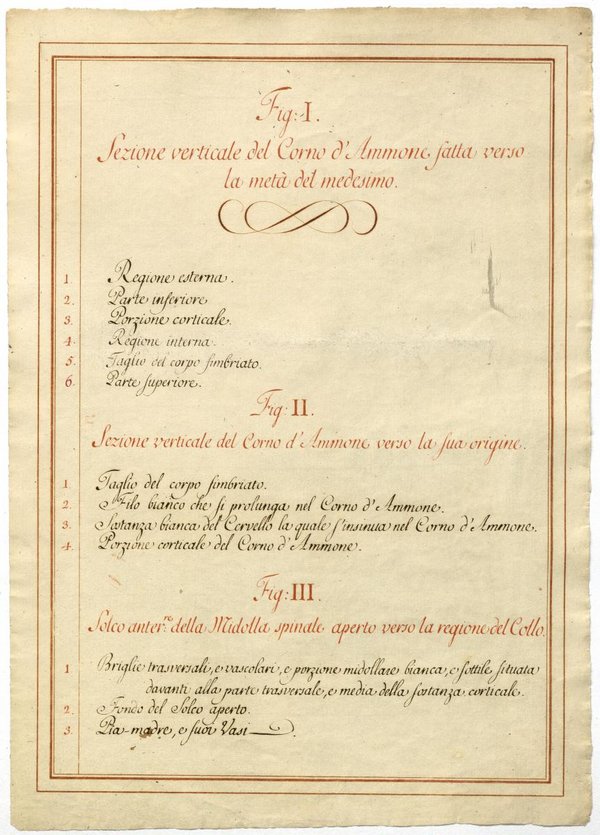 Fig: I.
Sezione verticale del Corno d'Ammone fatta verso
la metà del medesimo.
1. Regione esterna.
2. Parte inferiore
3. Porzione corticale.
4. Regione interna.
5. Taglio del corpo fimbriato.
6. Parte superiore.
Fig: II.
Sezione verticale del Corno d'Ammone verso la sua origine.
1 Taglio del corpo fimbriato.
2. Filo bianco che si prolunga nel Corno d'Ammone.
3. Sostanza bianca del Cervello la quale s'insinua nel Corno d'Ammone.
4. Porzione corticale del Corno d'Ammone.
Fig: III.
Solco anter.re della Midolla spinale aperto verso la regione del Collo.
1 Briglie trasversali, e vascolari, e porzione midollare bianca, e sottile situata
davanti alla parte trasversale, e media della sostanza corticale.
2. Fondo del Solco aperto.
3. Pia-madre, e suoi Vasi